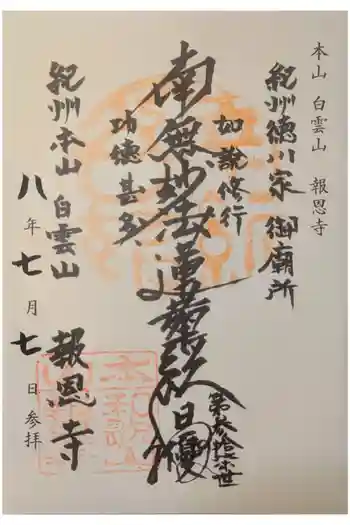 本山 白雲山 報恩寺
紀州徳川家 御廟所
如説修行
南無妙法蓮華経
功徳甚多
紀州本山 白雲山 報恩寺
八年七月七日参拝